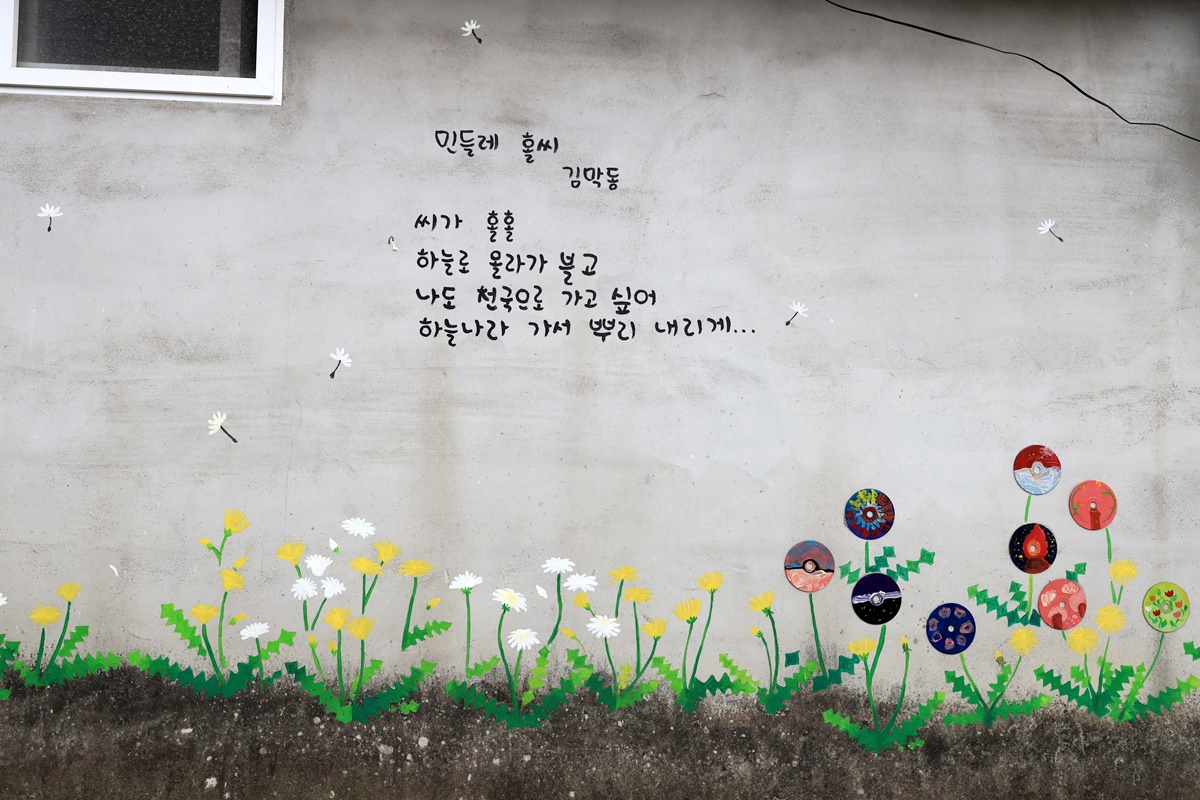 민들레 홀씨
김막동
씨가 홀홀
하늘로 올라가 불고
나도 천국으로 가고 싶어
하늘나라 가서 뿌리 내리게...